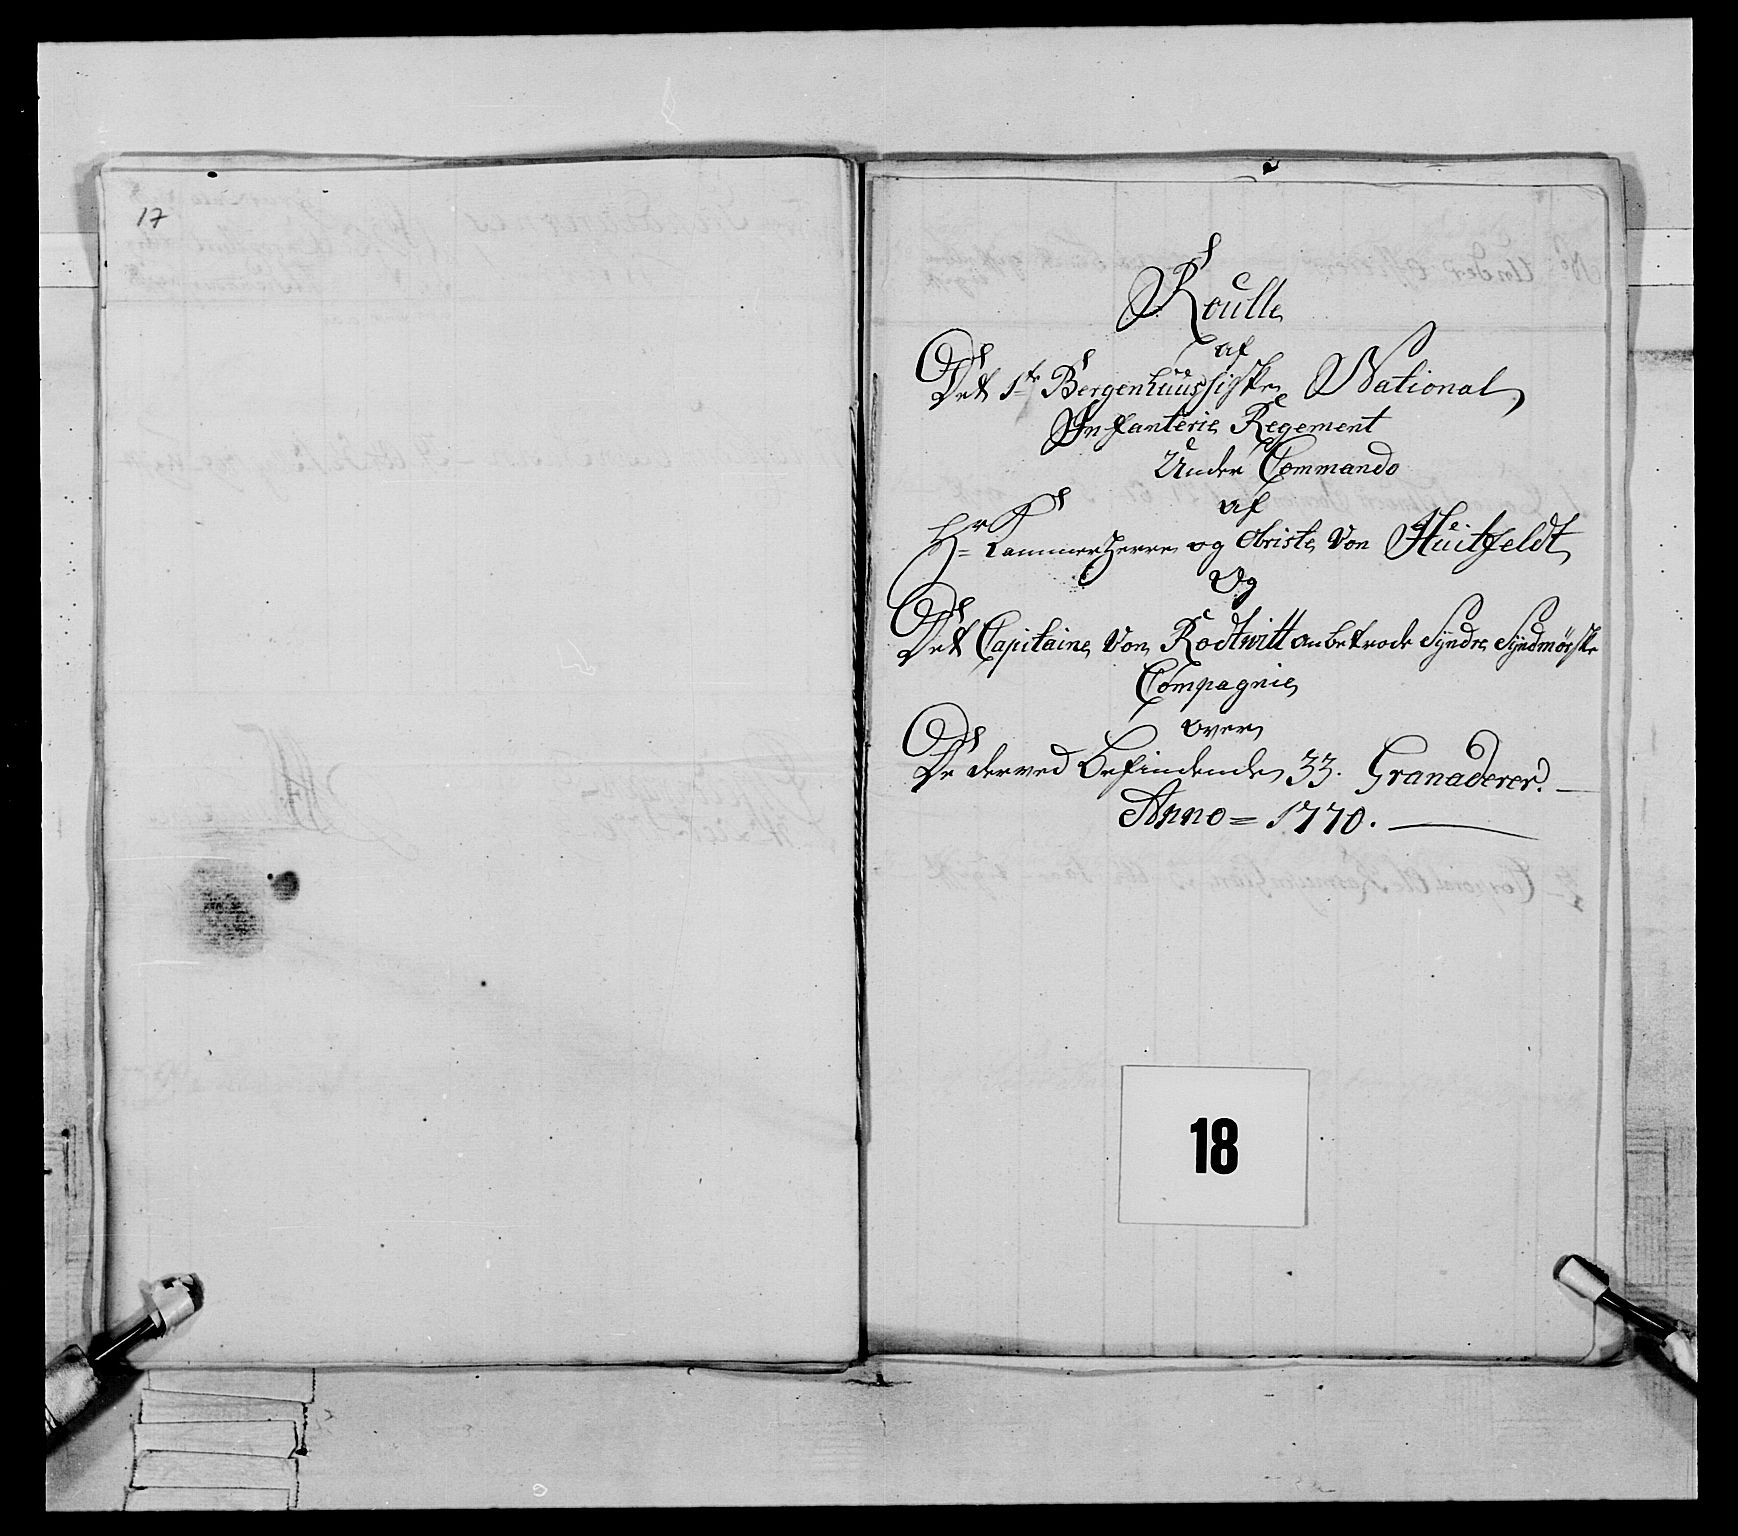 17
Roulle
af
Det 1te Bergenhuussiske National
Infanterie Regement
Under Commando
af
Hr Kammerherre og Obriste von Hüitfeldt
Og
Det Capitaine von Rodtwitt anbetrode Syndre Syndmørske
Compagnie
over
De derved befindende 33. Granaderer.
Anno = 1770.
18